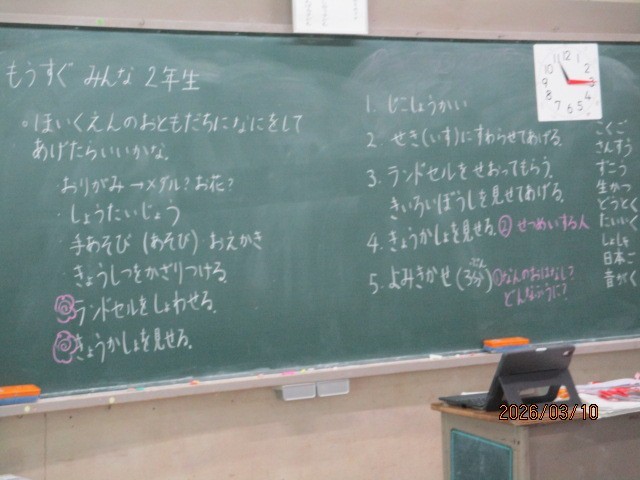 もうすぐ みんな 2年生
・ほいくえんのおともだちになにをして
あげたらいいかな。
・おりがみ→メダル?お花?
・しょうたいじょう
・手あそび (あそび)・おえかき
・きょうしつをかざりつける。
ランドセルをしょわせる。
きょうかしょを見せる。
1. じこしょうかい
2. せき(いす)にすわらせてあげる。
3. ランドセルをせおってもらう。
きいろいぼうしを見せてあげる。
4. きょうかしょを見せる。② せつめいする人
5. よみきかせ(3分)①なんのおはなし?
ぷん
どんなふうに?
こくご
さんすう
ずこう
生かつ
どうとく
たいいく
しょしゃ
日本ご
音がく
12
1
2
3
4
5
6
7
8
9
10
11
2026/03/10